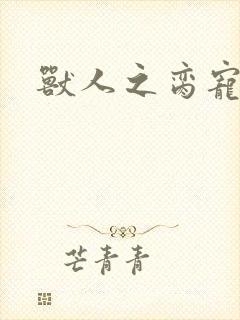 獸人之脔寵
芒青青